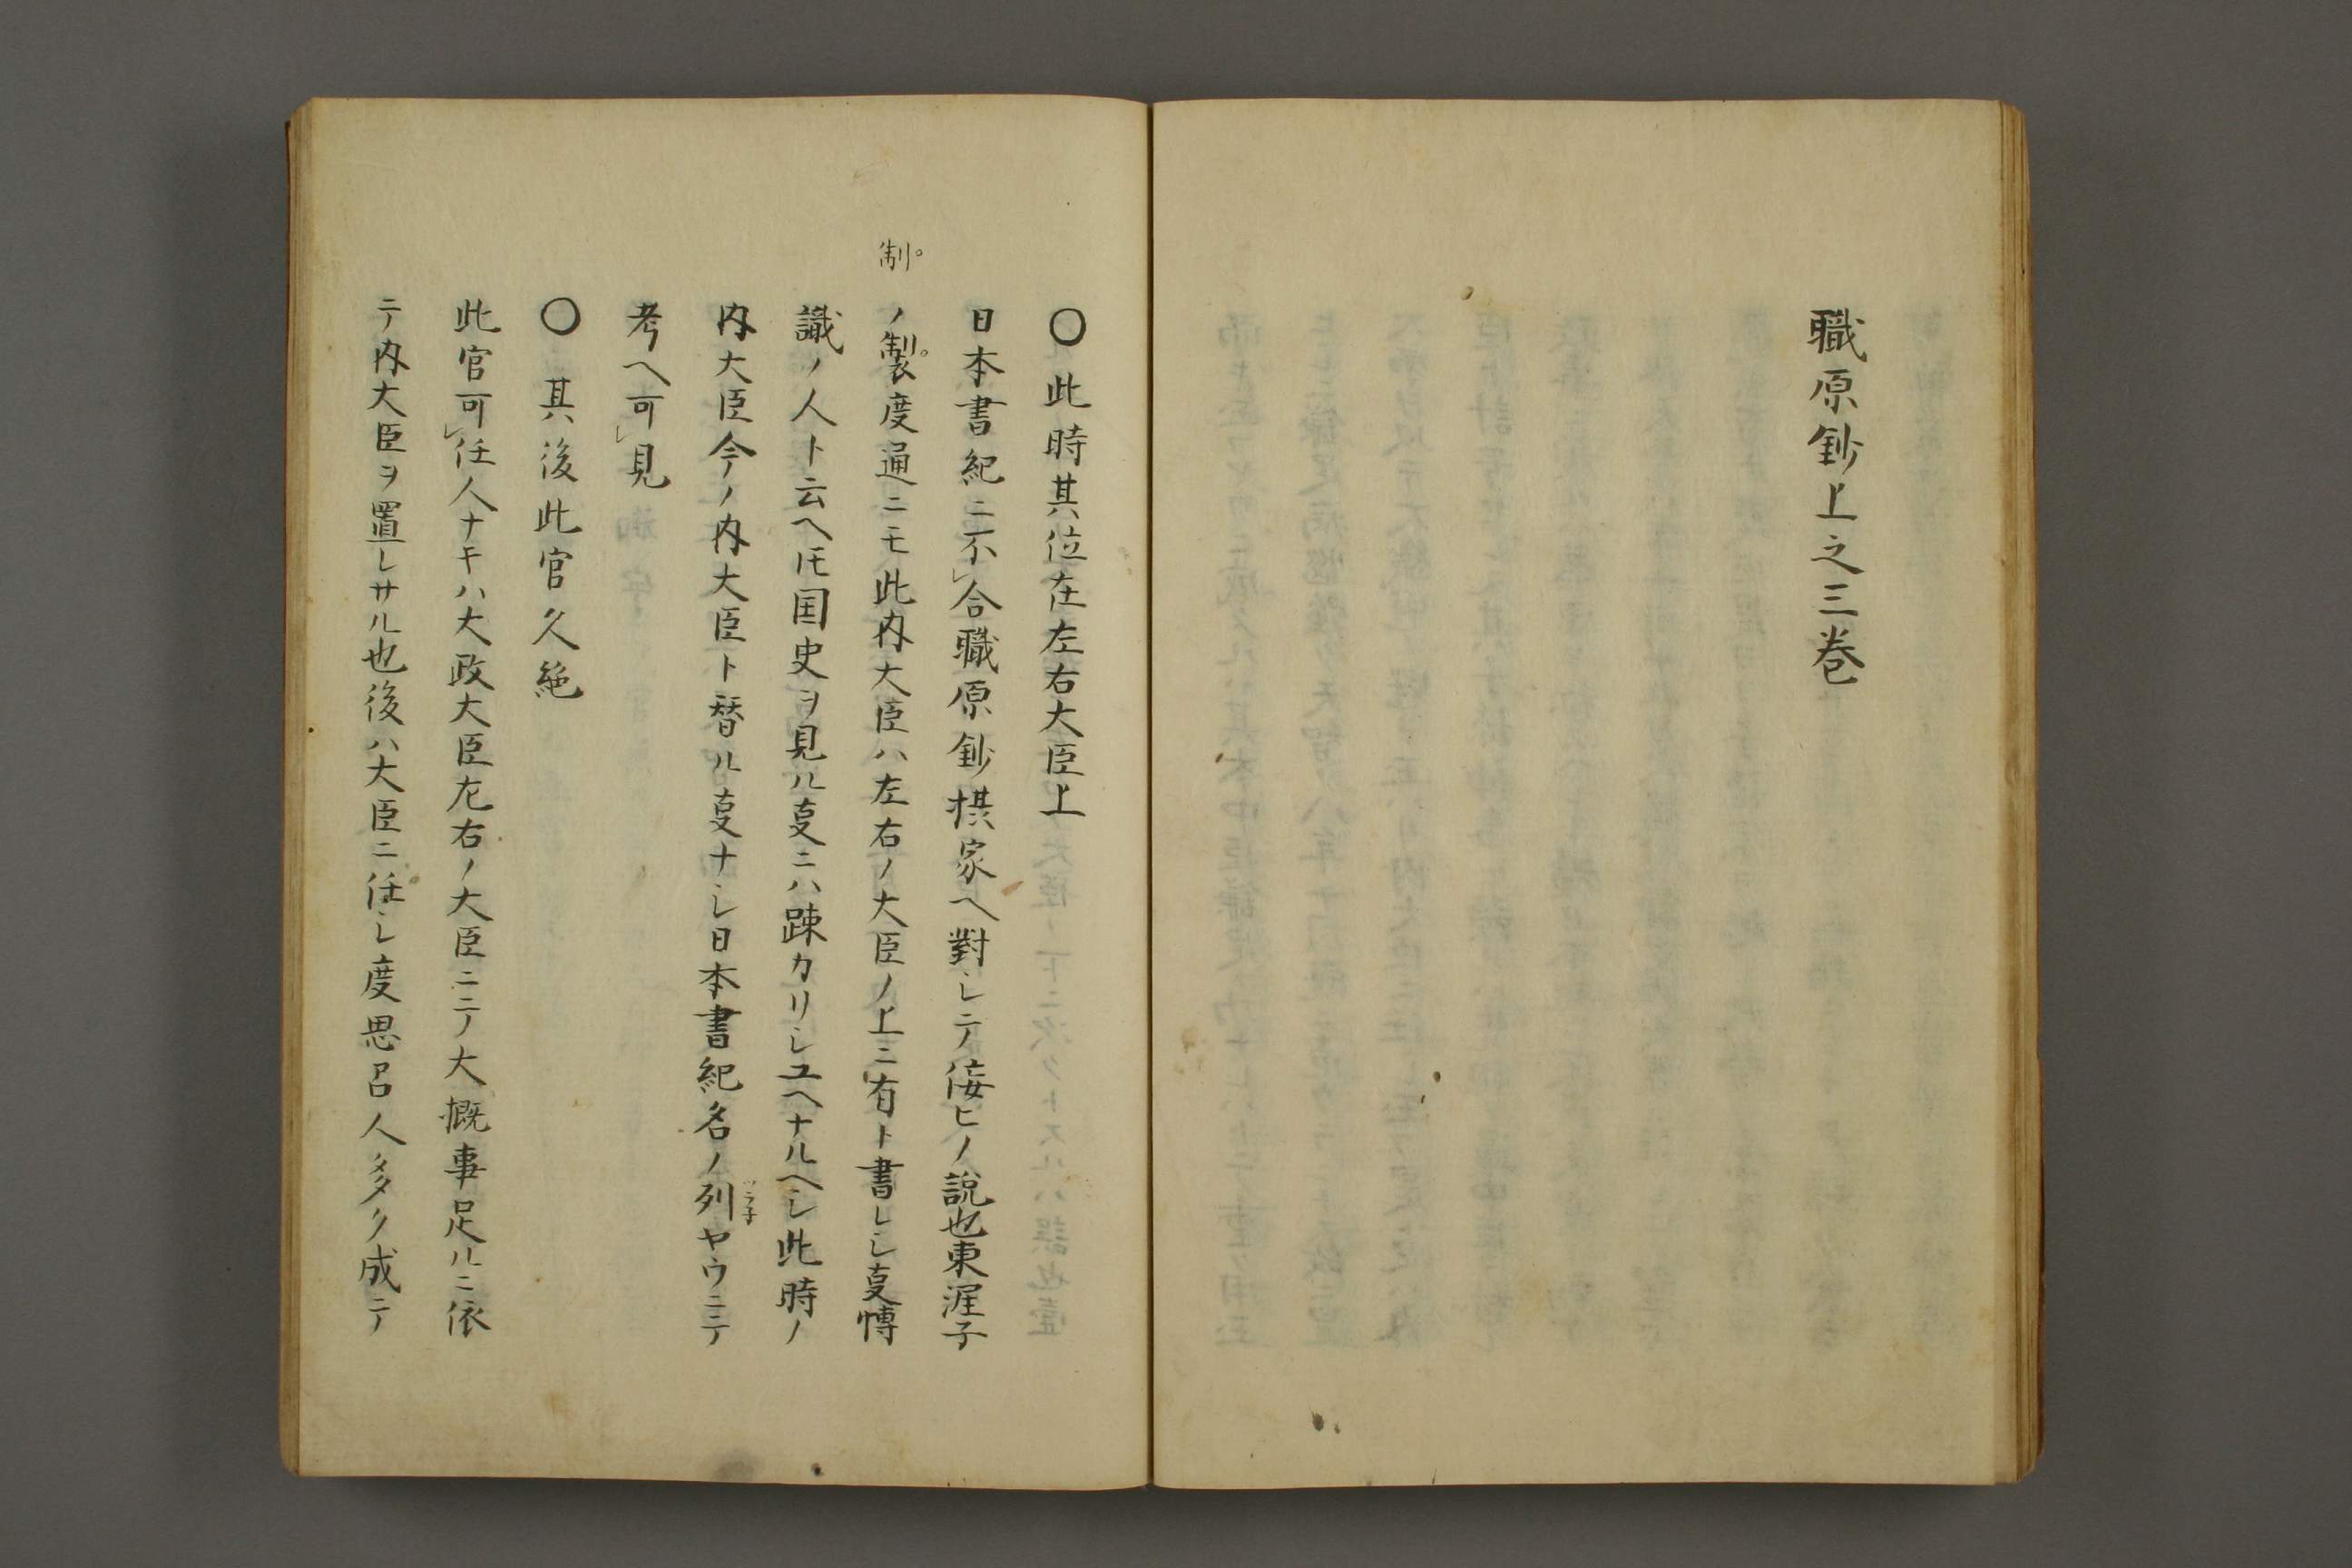 職原鈔上之三巻
〇此時其位在左右大臣上
日本書紀ニ不㆑合職原鈔摂家ヘ對シテ侫ヒノ説也東涯子
制
ノ製度通ニモ此内大臣ハ左右ノ大臣ノ上ニ有ト書レシ㕝愽
識ノ人ト云ヘ𪜈国史ヲ見ル㕝ニハ踈カリシユヘナルヘシ此時ノ
内大臣今ノ内大臣ト替ル㕝ナシ日本書紀名ノ列ヤウニテ
ツラ子
考ヘ可㆑見
〇其後此官久絶
此官可㆑任人ナキハ大政大臣左右ノ大臣ニテ大概事足ルニ依
テ内大臣ヲ置レサル也後ハ大臣ニ任シ度思召人多ク成テ